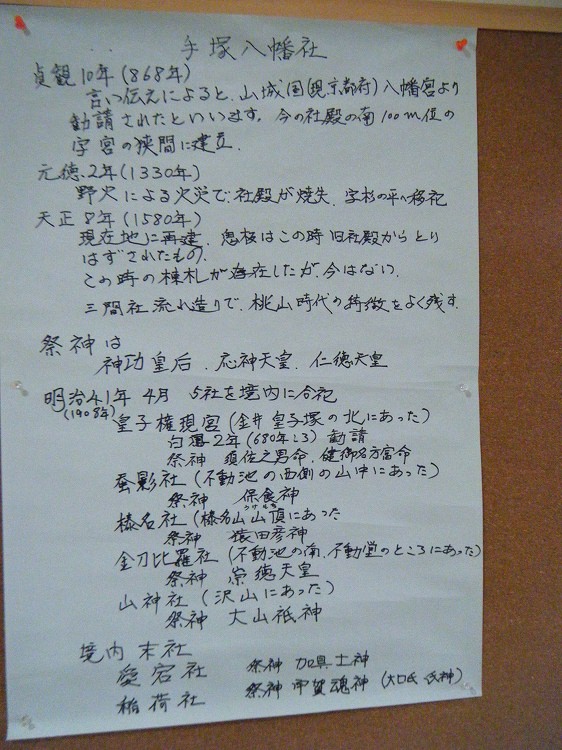 手塚八幡社
貞観10年(868年)
言い伝えによると、山城国(現京都府)八幡宮より
勧請されたといいます。今の社殿の南100m位の
字宮の狭間に建立.
元徳.2年(1330年)
野火による火災で社殿が焼失、字杉の平へ移祀
天正8年(1580年)
現在地に再建、鬼板はこの時旧社殿からとり
はずされたもの.
この時の棟札が存在したが、今はない.
三間社流れ造りで、桃山時代の特徴をよく残す.
祭神は
神功皇后.応神天皇.仁徳天皇
明治41年4月 5社を境内に合祀
(1908年)
皇子権現宮(金井皇子塚の北にあった)
白鳳2年(680年ころ)勧請
祭神 須佐之男命.健御名方富命
蚕影社(不動池の西側の山中にあった)
祭神 保食神
榛名社(榛名山山頂にあった
祭神 猿田彦神
金刀比羅社(不動池の南、不動堂のところにあった)
祭神 崇徳天皇
山神社(沢山にあった)
祭神 大山祇神
境内末社
愛宕社 祭神 加具土神
稲荷社 祭神 宇賀魂神(大口氏氏神)